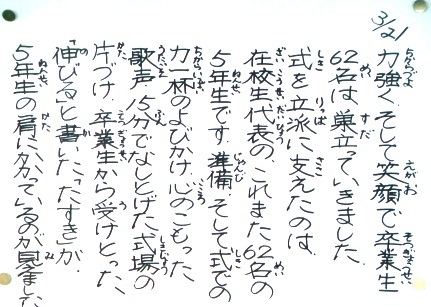 3/21
力強く、そして笑顔で卒業生
62名は巣立っていきました。
式を立派に支えたのは、
在校生代表の、これまた62名の
5年生です。準備、そして式での
力一杯のよびかけ、心のこもった
歌声、15分でなしとげた式場の
片づけ。卒業生から受けとった、
「伸びる」と書いた「たすき」が、
5年生の肩にかかっているのが見えました